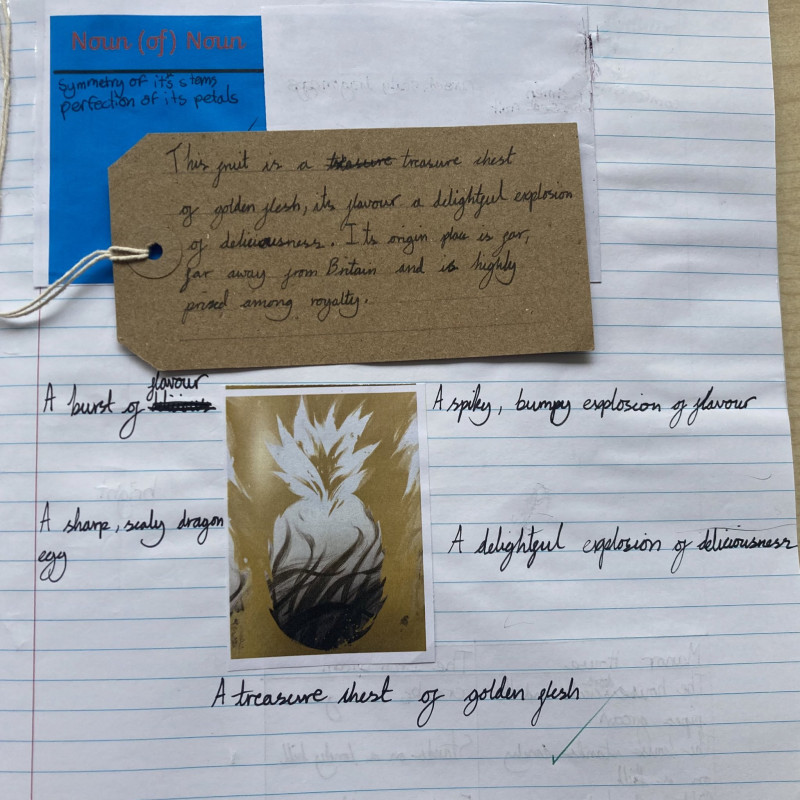 Noun (of) Noun
Symmetry of it's stems
perfection of its petals
This fruit is a treasure treasure chest
of golden flesh, its flavour a delightful explosion
of deliciousness. Its origin place is far,
far away from Britain and is highly
prized among royalty.
A burst of flavour
A spiky, bumpy explosion of flavour
A sharp, scaly dragon
egg
A delightful explosion of deliciousness
A treasure chest of golden flesh